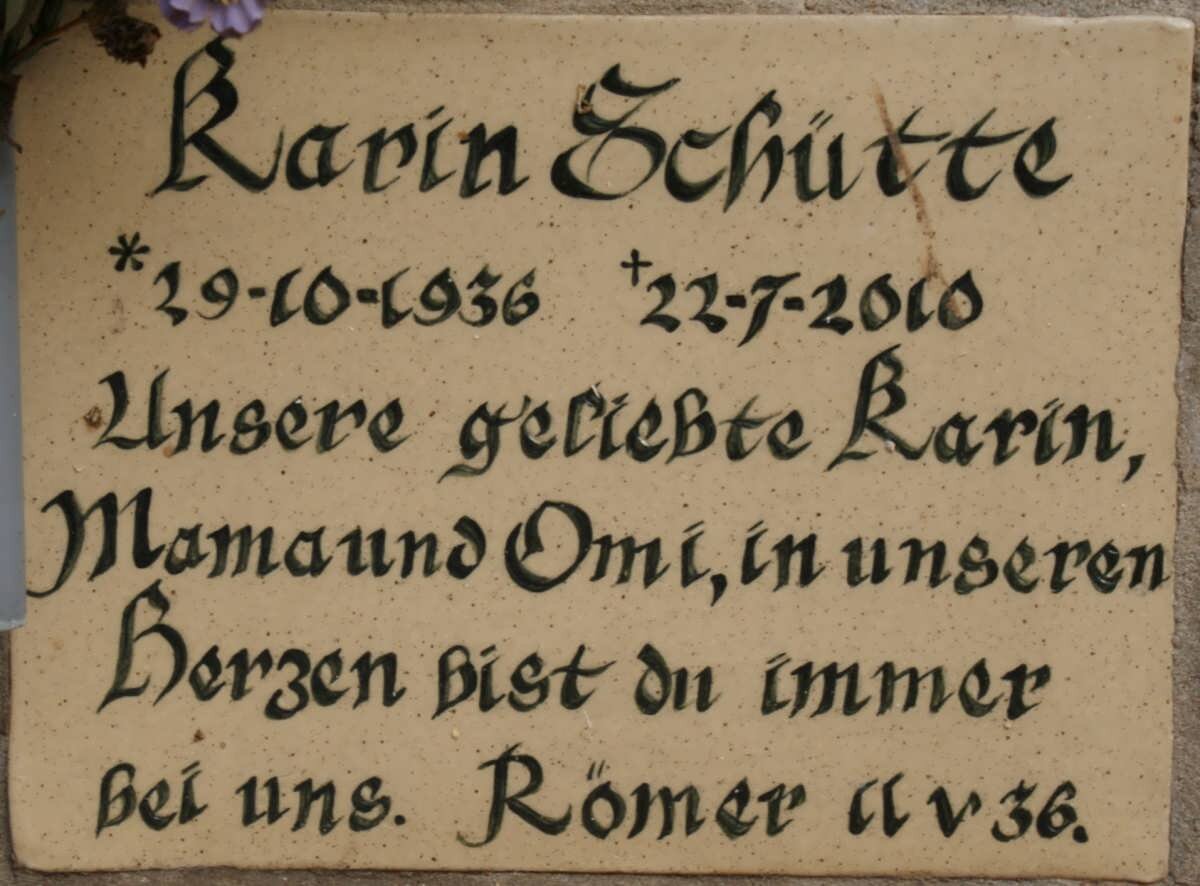 Karin Schütte
*29-10-1936 +22-7-2010
Unsere geliebte Karin,
Mama und Omi, in unseren
Herzen bist du immer
bei uns. Römer 11 v 36.